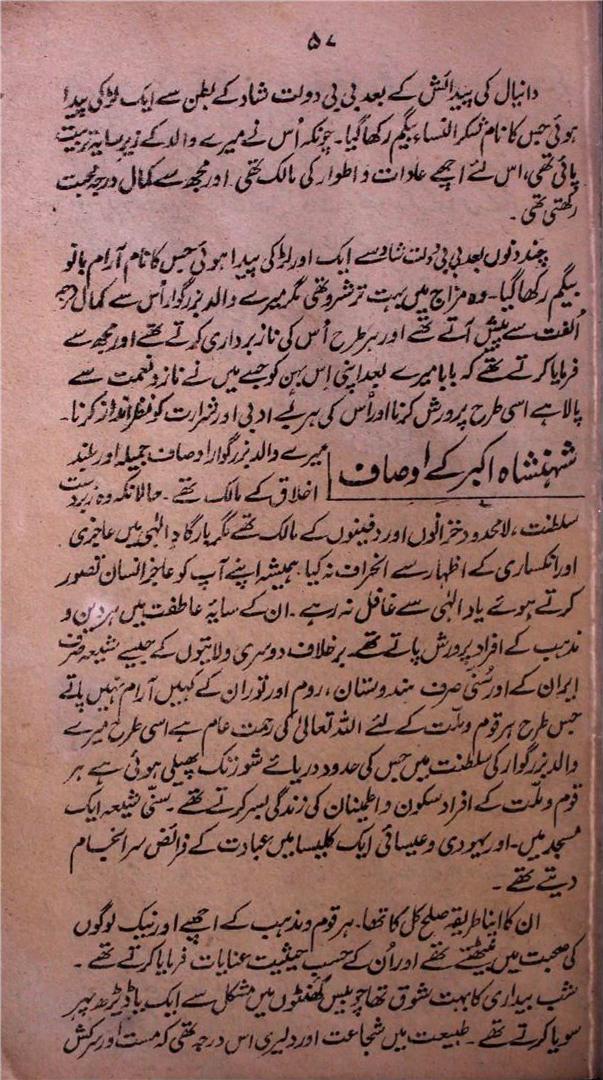 ۵۷
دانیال کی پیدائش کے بعد بی بی دولت شاد کے بطن سے ایک لڑکی پیدا
ہوئی جس کا نام شکر النساء بیگم رکھا گیا۔ چونکہ اُس نے میرے والد کے زیر سایہ تربیت
پائی تھی، اس لئے اچھے عادات و اطوار کی مالک تھی۔ اور مجھ سے کمال درجہ محبت
رکھتی تھی۔
چند دنوں بعد بی بی دولت شاد سے ایک اور لڑکی پیدا ہوئی جس کا نام آرام بانو
بیگم رکھا گیا۔ وہ مزاج میں بہت ترشرو تھی مگر میرے والد بزرگوار اُس سے کمال
اُلفت سے پیش آتے تھے اور ہر طرح اُس کی ناز برداری کرتے تھے اور مجھ سے
فرمایا کرتے تھے کہ بابا میرے بعد اپنی اِس بہن کو جسے میں نے ناز و نعمت سے
پالا ہے اسی طرح پرورش کرنا اور اُس کی ہر بے ادبی اور شرارت کو نظر انداز کرنا۔
شہنشاہ اکبر کے اوصاف
میرے والد بزرگوار اوصاف جمیلہ اور بلند
اخلاق کے مالک تھے۔ حالانکہ وہ زبردست
سلطنت، لامحدود خزانوں اور دفینوں کے مالک تھے مگر بارگاہ الٰہی میں عاجزی
اور انکساری کے اظہار سے انحراف نہ کیا۔ ہمیشہ اپنے آپ کو عاجز انسان تصور
کرتے ہوئے یاد الٰہی سے غافل نہ رہے۔ ان کے سایۂ عاطفت میں ہر دین و
مذہب کے افراد پرورش پاتے تھے۔ برخلاف دوسری ولایتوں کے جیسے شیعہ صرف
ایران کے اور سُنّی صرف ہندوستان، روم اور توران کے کہیں آرام نہیں پاتے
جس طرح ہر قوم و ملّت کے لئے اللہ تعالیٰ کی رحمت عام ہے اسی طرح میرے
والد بزرگوار کی سلطنت میں جس کی حدود دریائے شور تک پھیلی ہوئی ہے ہر
قوم و ملّت کے افراد سکون و اطینان کی زندگی بسر کرتے تھے۔ سنّی شیعہ ایک
مسجد میں۔ اور یہودی و عیسائی ایک کلیسا میں عبادت کے فرائض سرانجام
دیتے تھے۔
ان کا اپنا طریقہ صلح کل کا تھا۔ ہر قوم و مذہب کے اچھے اور نیک لوگوں
کی صحبت میں بیٹھتے تھے اور اُن کے حسب حیثیت عنایات فرمایا کرتے تھے۔
شب بیداری کا بہت شوق تھا چوبیس گھنٹوں میں مشکل سے ایک یا ڈیڑھ پہر
سویا کرتے تھے۔ طبیعت میں شجاعت اور دلیری اس درجہ تھی کہ مست اور سرکش